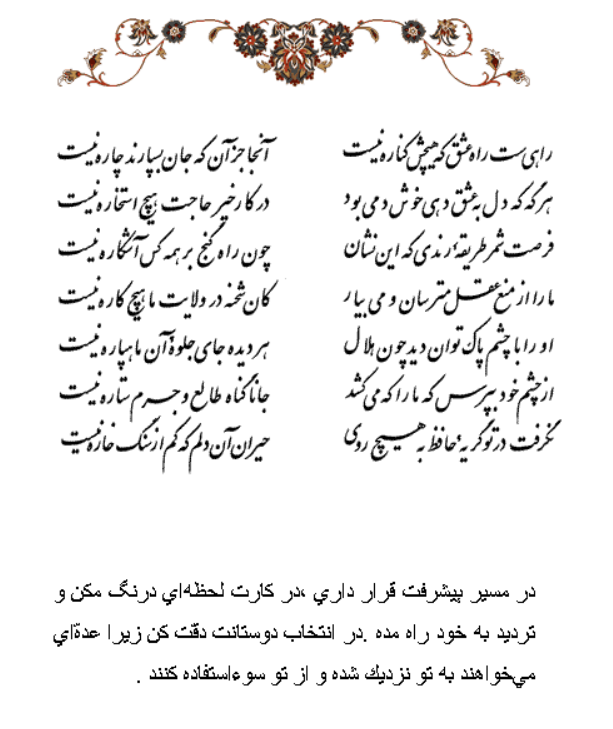 راهی‌ست راه عشق که هیچش کناره نیست آنجا جز آن که جان بسپارند چاره نیست
هرگه که دل به عشق دهی خوش دمی بود در کار خیر حاجت هیچ استخاره نیست
فرصت شمر طریقهٔ رندی که این نشان چون راه گنج بر همه کس آشکاره نیست
ما را از منع عقل مترسان و می بیار کان شحنه در ولایت ما هیچ کاره نیست
او را با چشم پاک توان دید چون هلال هر دیده جای جلوهٔ آن ماهپاره نیست
از چشم خود بپرس که ما را که می‌کشد جانا گناه طالع و جرم ستاره نیست
نگرفت در تو گریهٔ حافظ به هیچ روی حیران آن دلم که کم از سنگ خاره نیست
در مسير پيشرفت قرار داري ،در كارت لحظه‌اي درنگ مكن و
ترديد به خود راه مده .در انتخاب دوستانت دقّت كن زيرا عدّه‌اي
مي‌خواهند به تو نزديك شده و از تو سوءاستفاده كنند .